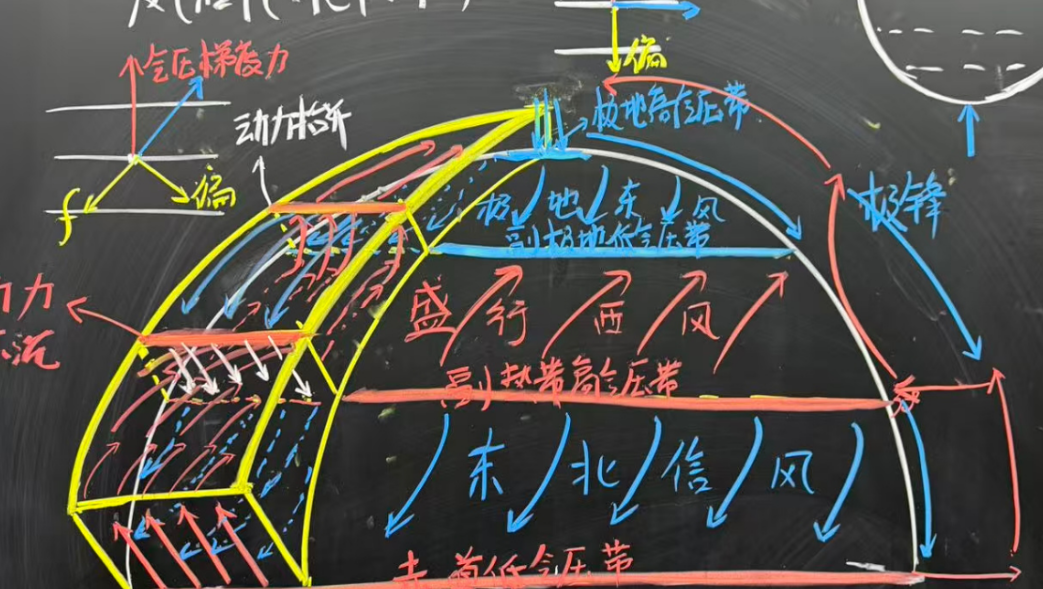 气压梯度力
偏
f
偏
动力抬升
极地高气压带
极地东风
副极地低气压带
极锋
盛行西风
副热带高气压带
东北信风
赤道低气压带
力
流